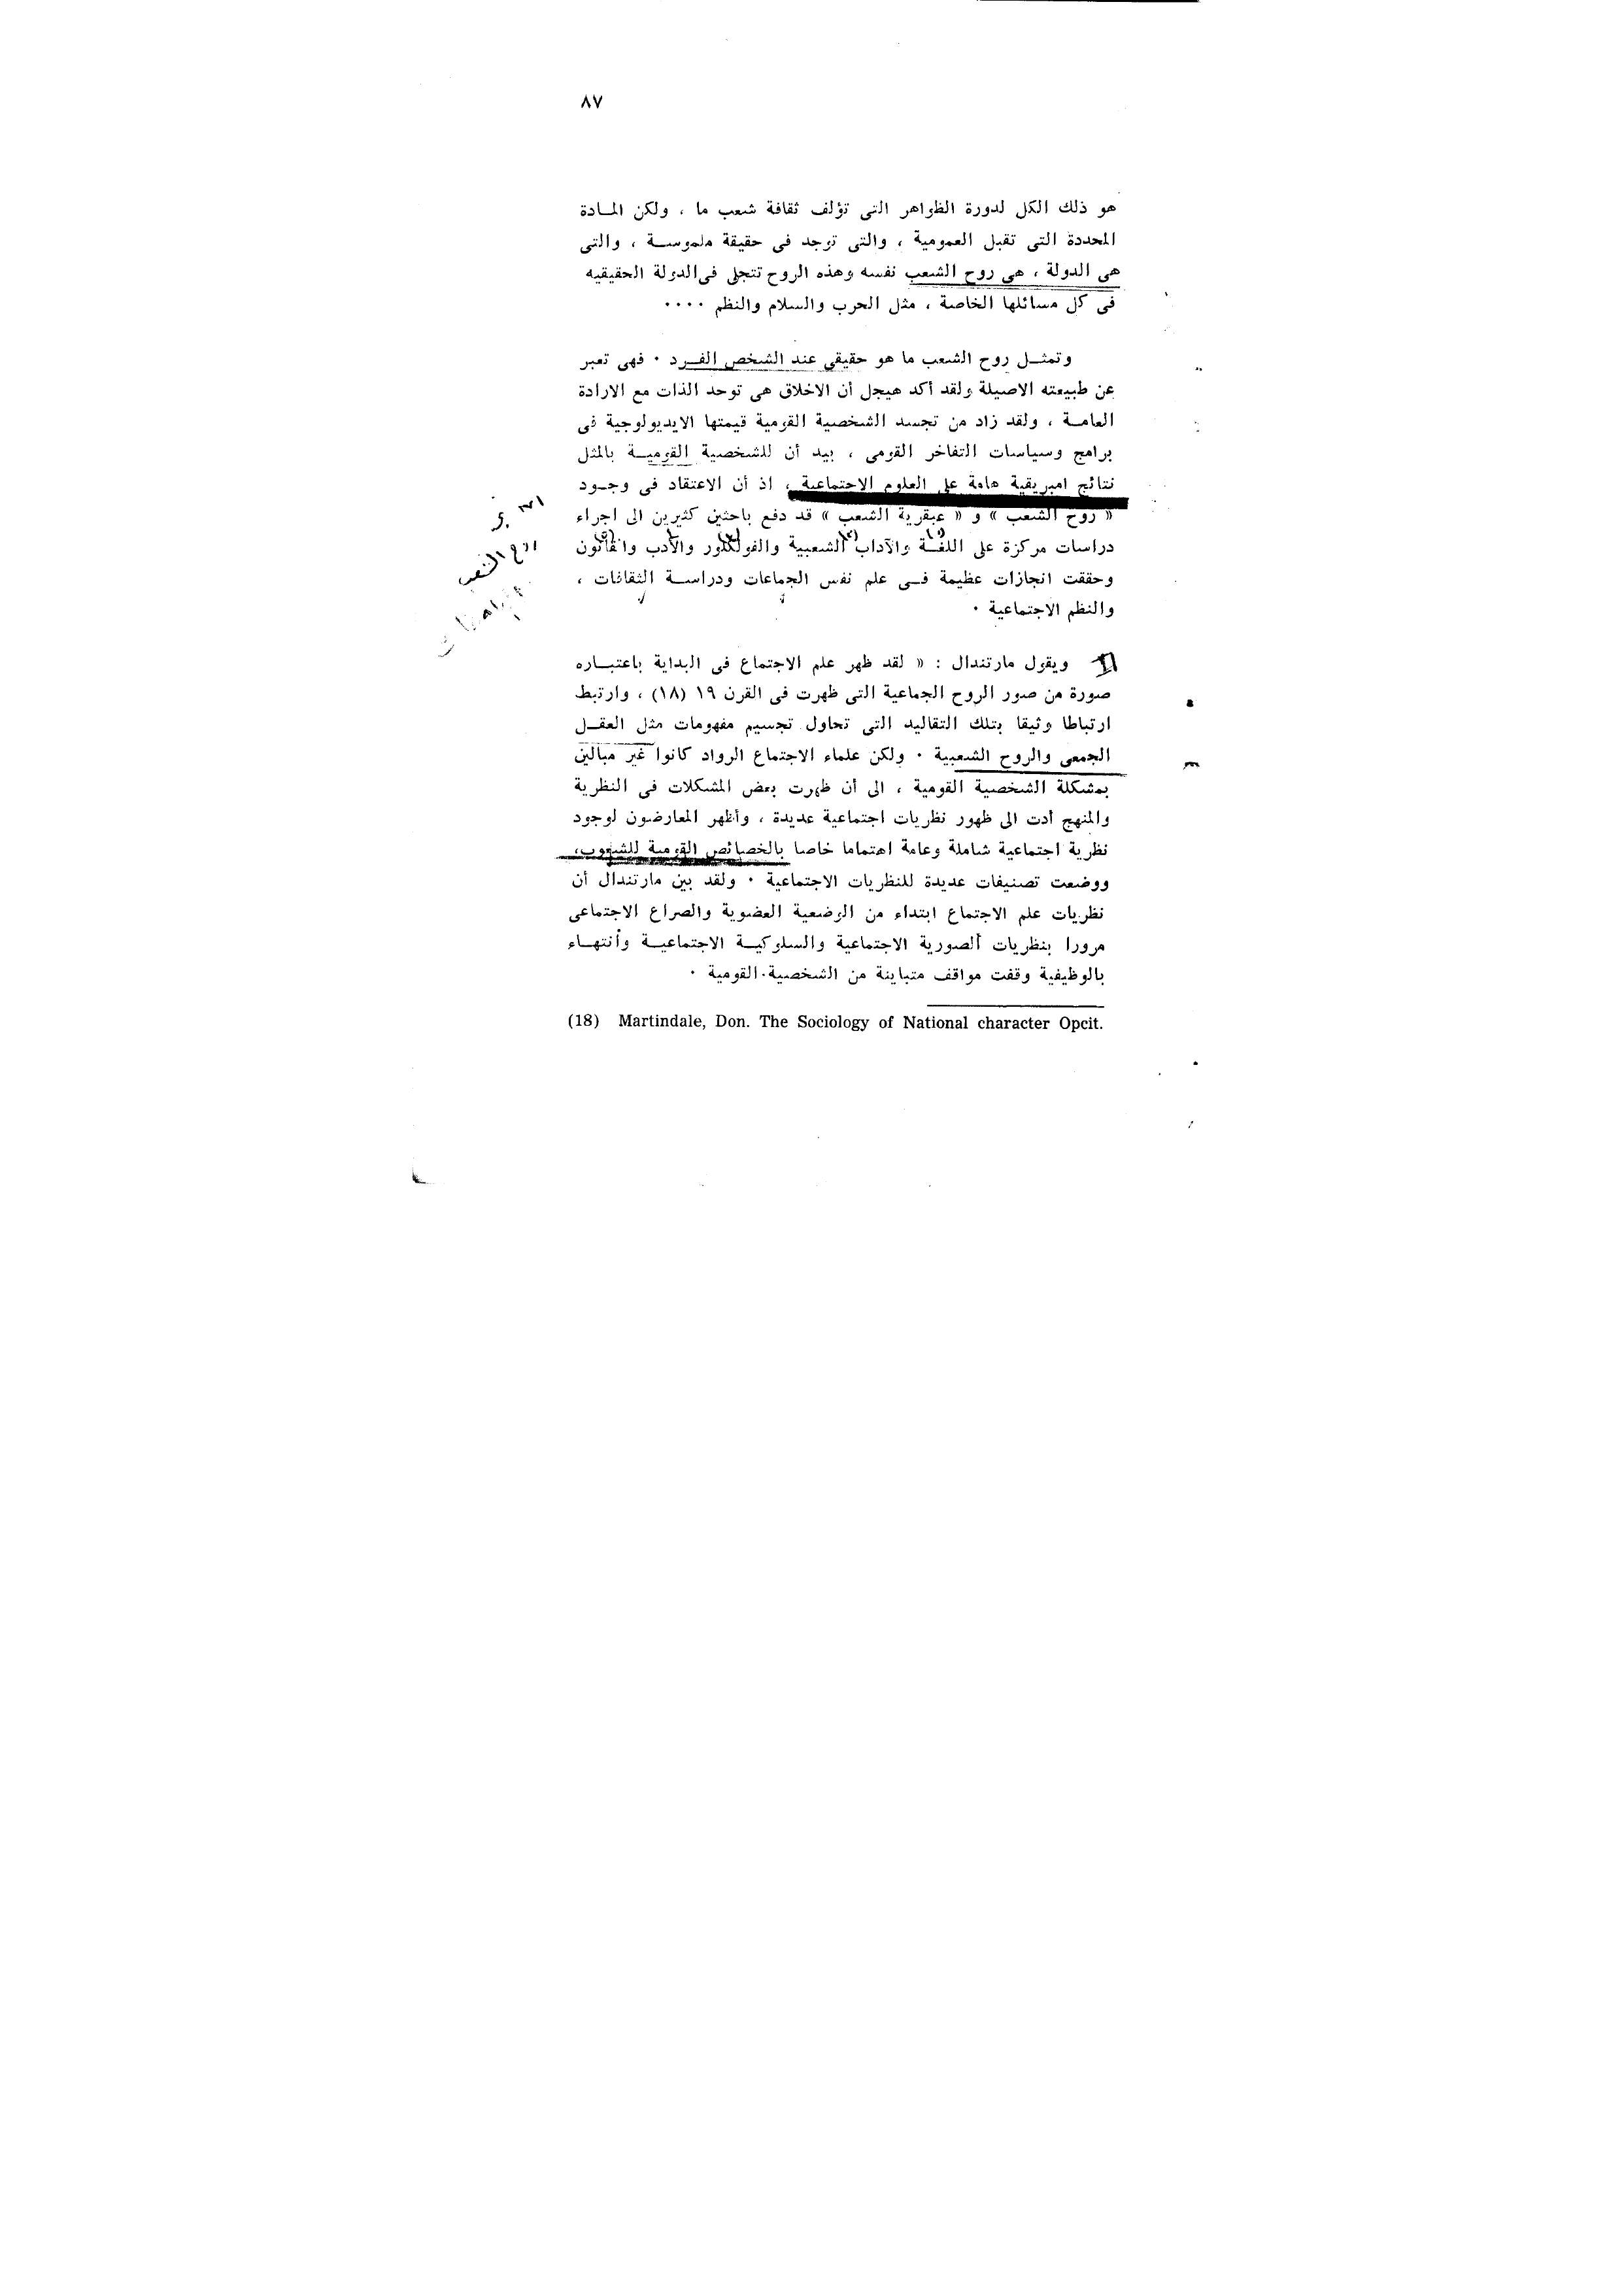 ٨٧
هو ذلك الكل لدورة الظواهر التى تؤلف ثقافة شعب ما ، ولكن المـادة
المحددة التى تقبل العمومية ، والتى توجد فى حقيقة ملموسـة ، والتى
هى الدولة ، هى روح الشعب نفسه وهذه الروح تتجلى فى الدولة الحقيقيه
فى كل مسائلها الخاصة ، مثل الحرب والسلام والنظم ٠٠٠٠
وتمثـل روح الشعب ما هو حقيقى عند الشخص الفـرد ٠ فهى تعبر
عن طبيعته الاصيلة ولقد أكد هيجل أن الاخلاق هى توحد الذات مع الارادة
العامـة ، ولقد زاد من تجسد الشخصية القومية قيمتها الايديولوجية فى
برامج وسياسات التفاخر القومى ، بيد أن للشخصية القوميـة بالمثل
نتائج امبريقية هامة على العلوم الاجتماعية ، اذ أن الاعتقاد فى وجـود
« روح الشعب » و « عبقرية الشعب » قد دفع باحثين كثيرين الى اجراء
دراسات مركزة على اللغـة والآداب الشعبية والفولكلور والأدب والقانون
وحققت انجازات عظيمة فـى علم نفس الجماعات ودراسـة الثقافات ،
والنظم الاجتماعية ٠
الشعب
ويقول مارتندال : « لقد ظهر علم الاجتماع فى البداية باعتبـاره
صورة من صور الروح الجماعية التى ظهرت فى القرن ١٩ (١٨) ، وارتبط
ارتباطا وثيقا بتلك التقاليد التى تحاول تجسيم مفهومات مثل العقـل
الجمعى والروح الشعبية ٠ ولكن علماء الاجتماع الرواد كانوا غير مبالين
بمشكلة الشخصية القومية ، الى أن ظهرت بعض المشكلات فى النظرية
والمنهج أدت الى ظهور نظريات اجتماعية عديدة ، وأظهر المعارضون لوجود
نظرية اجتماعية شاملة وعامة اهتماما خاصا بالخصائص القومية للشعوب،
ووضعت تصنيفات عديدة للنظريات الاجتماعية ٠ ولقد بين مارتندال أن
نظريات علم الاجتماع ابتداء من الوضعية العضوية والصراع الاجتماعى
مرورا بنظريات الصورية الاجتماعية والسلوكيـة الاجتماعيـة وأنتهـاء
بالوظيفية وقفت مواقف متباينة من الشخصية القومية ٠
(18) Martindale, Don. The Sociology of National character Opcit.